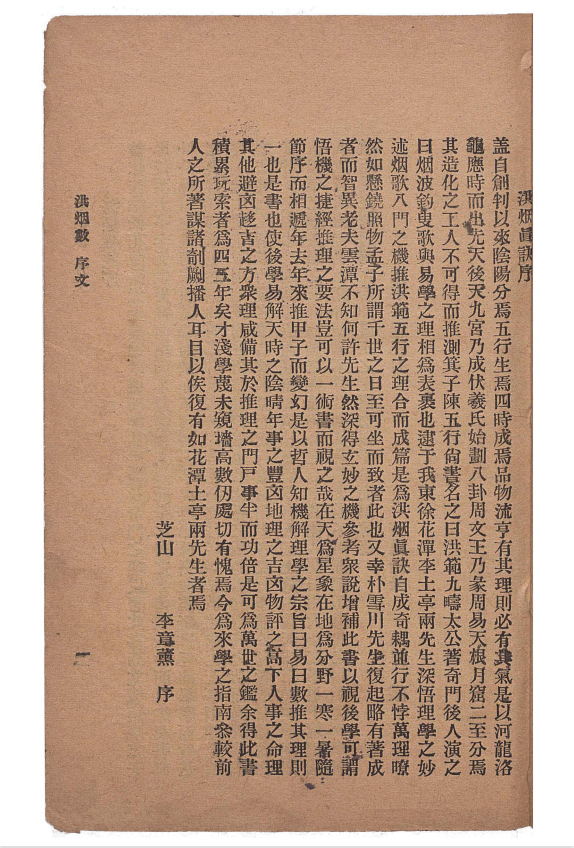 洪烟眞訣序
盖自創判以來陰陽分焉五行生焉四時成焉品物流亨有其理則必有其氣是以河龍洛
龜應時而出先天後天九宮乃成伏羲氏始劃八卦周文王乃彖周易天根月窟二至分焉
其造化之工人不可得而推測箕子陳五行尙書名之曰洪範九疇太公著奇門後人演之
曰烟波釣叟歌與易學之理相爲表裏也逮于我東徐花潭李土亭兩先生深悟理學之妙
述烟歌八門之機推洪範五行之理合而成篇是爲洪烟眞訣自成奇耦並行不悖萬理暸
然如懸鏡照物孟子所謂千世之日至可坐而致者此也又幸朴雪川先生復起略有著成
者而智異老夫雲潭不知何許先生然深得玄妙之機參考衆說增補此書以視後學可謂
悟機之捷經推理之要法豈可以一術書而視之哉在天爲星象在地爲分野一寒一暑隨
節序而相遞年去年來推甲子而變幻是以哲人知機解理學之宗旨曰易曰數推其理則
一也是書也使後學易解天時之陰晴年事之豐凶地理之吉凶物評之高下人事之命理
其他避凶趍吉之方衆理咸備其於推理之門戶事半而功倍是可爲萬世之鑑余得此書
積累玩索者爲四五年矣才淺學蔑未窺墻高數仞處切有愧焉今爲來學之指南叅較前
人之所著謀諸剞劂播人耳目以俟復有如花潭土亭兩先生者焉
芝山 李章薰 序
洪烟數 序文
一